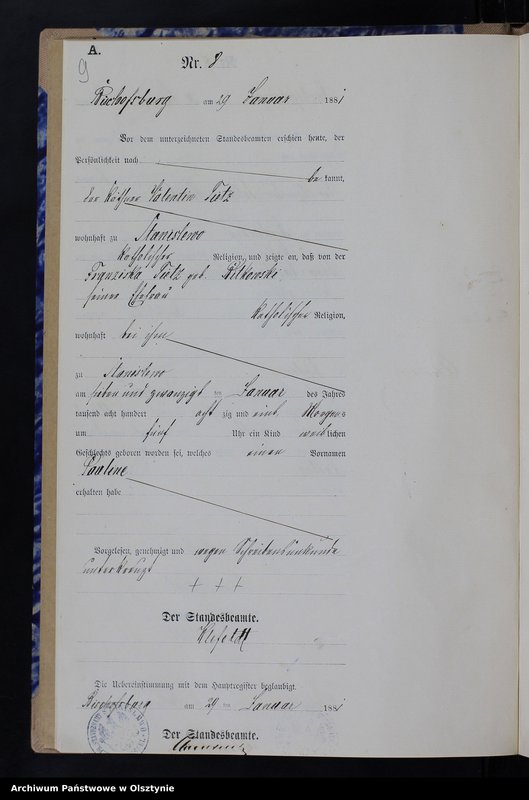 A.
9
Nr. 8
Bischofsburg am 29 Januar 1881
Vor dem unterzeichneten Standesbeamten erschien heute, der
Persönlichkeit nach
be kannt,
der Käthner Valentin Tütz
wohnhaft zu Stanislewo
katholischer Religion, und zeigte an, daß von der
Franziska Tütz geb.
seiner Ehefrau
katholischer Religion,
wohnhaft bei ihm
zu Stanislewo
am sieben und zwanzigsten Januar des Jahres
tausend acht hundert acht zig und eins Morgens
um fünf Uhr ein Kind weiblichen
Geschlechts geboren worden sei, welches einen Vornamen
Pauline
erhalten habe
Vorgelesen, genehmigt und wegen Schreibensunkunde
unterkreuzt
+ + +
Der Standesbeamte.
Klefeldt
Die Uebereinstimmung mit dem Hauptregister beglaubigt.
Bischofsburg am 29 ten Januar 1881
Der Standesbeamte.
Archiwum Państwowe w Olsztynie